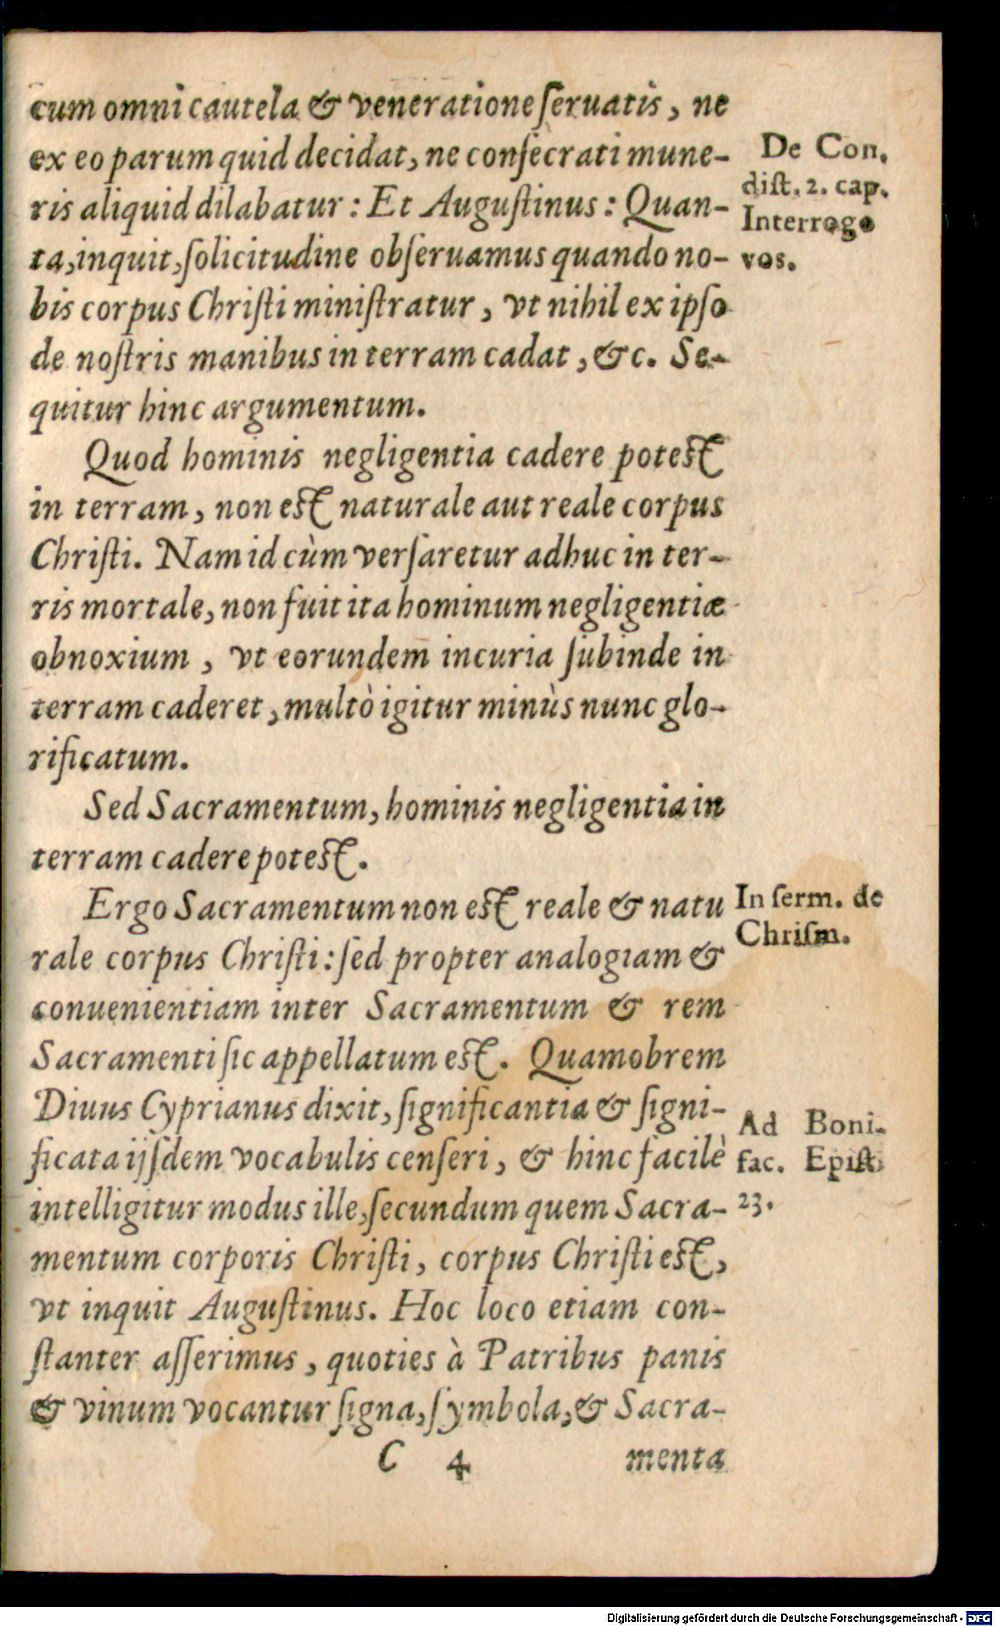 cum omni cautela & veneratione ſeruatis, ne
ex eo parum quid decidat, ne conſecrati mune-
ris aliquid dilabatur: Et Auguſtinus: Quan-
ta, inquit, ſolicitudine obſeruamus quando no-
bis corpus Chriſti miniſtratur, vt nihil ex ipſo
de noſtris manibus in terram cadat, &c. Se-
quitur hinc argumentum.
De Con.
diſt. 2. cap.
Interrogo
vos.
Quod hominis negligentia cadere poteſt
in terram, non eſt naturale aut reale corpus
Chriſti. Nam id cùm verſaretur adhuc in ter-
ris mortale, non fuit ita hominum negligentiæ
obnoxium, vt eorundem incuria ſubinde in
terram caderet, multò igitur minùs nunc glo-
rificatum.
Sed Sacramentum, hominis negligentia in
terram cadere poteſt.
Ergo Sacramentum non eſt reale & natu
rale corpus Chriſti: ſed propter analogiam &
conuenientiam inter Sacramentum & rem
Sacramenti ſic appellatum eſt. Quamobrem
Diuus Cyprianus dixit, ſignificantia & ſigni-
ficata ijſdem vocabulis cenſeri, & hinc facilè
intelligitur modus ille, ſecundum quem Sacra-
mentum corporis Chriſti, corpus Chriſti eſt,
vt inquit Auguſtinus. Hoc loco etiam con-
ſtanter aſſerimus, quoties à Patribus panis
& vinum vocantur ſigna, ſymbola, & Sacra-
In ſerm. de
Chriſm.
Ad Boni-
fac. Epiſt.
23.
C 4 menta
Digitalisierung gefördert durch die Deutsche Forschungsgemeinschaft - DFG